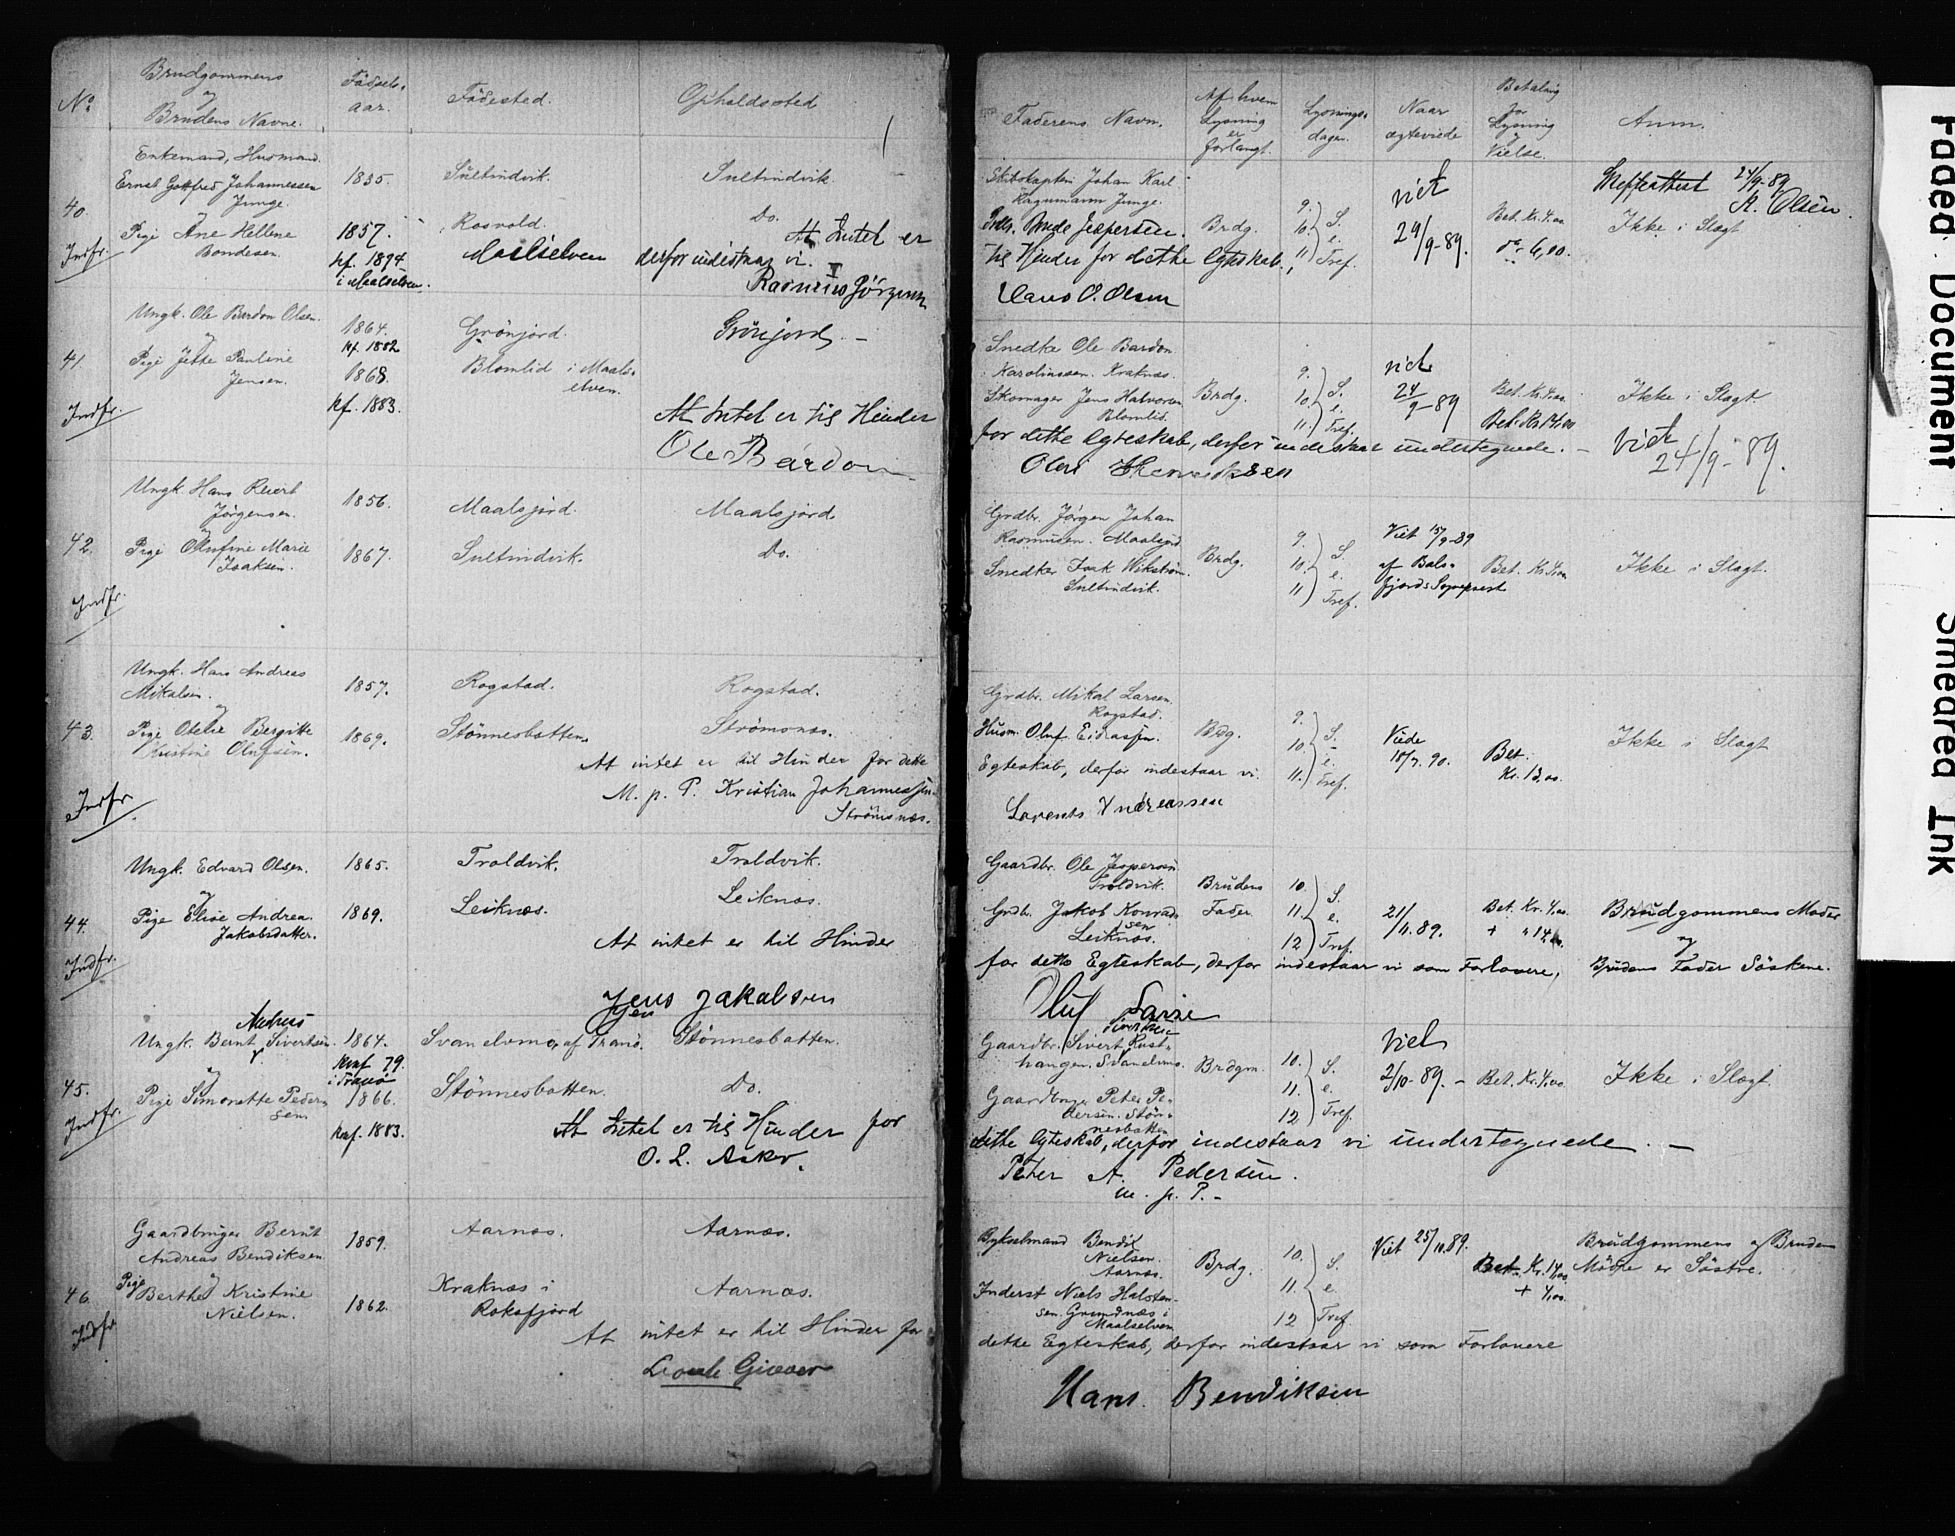 No.
Brudgommens
og
Brudens Navne.
Födsels-
aar.
Födested.
Opholdssted
Enkemand, Husmand.
Ernst Gottfred Johannessen
Junge.
1835.
Sultindvik.
Sultindvik.
40.
Pige Ane Hellene
Bondesen.
1857.
Rosvold.
Do.
Indfr.
kf. 1874
i Maalselven.
Maalselven
At Intet er
derfor indestaar vi.
Rasmus Jörgensen
Ungk. Ole Bardon Olsen.
og
1864.
kf. 1882
Grönjord.
Grönjord.
41.
Pige Jette Pauline
Jensen.
1868.
kf. 1883.
Blomlid i Maals-
elven.
Indfr.
At Intet er til Hinder
Ole Bardon
Ungk. Hans Reiert
Jørgensen.
og
1856.
Maalsjord.
Maalsjord
42.
Pige Olufine Marie
Isaksen.
1867.
Sultindvik.
Do.
Indfr.
Ungk. Hans Andreas
Mikalsen.
og
1857.
Rogstad.
Rogstad.
43.
Pige Otelie Bergitte
Kristine Olufsen.
1869.
Stönnesbotten.
Strömsnes.
At intet er til Hinder for dette
M. p. P. Kristian Johannessen
Strömsnæs.
Indfr.
Ungk. Edvard Olsen.
og
1865.
Troldvik.
Troldvik.
44.
Pige Elise Andrea
Jakobsdatter.
1869.
Leiknæs.
Leiknæs.
At intet er til Hinder
Indfr.
Jens Jakobsen
Andreas
Ungk. Bernt Sivertsen.
og
1864.
Konf 79.
i Tranö
Svanelvmo, af Tranö.
Stönnesbotten.
45.
Pige Simonette Peder-
sen.
1866.
Konf. 1883.
Stönnesbotten.
Do.
Indfr.
At Intet er til Hinder for
O. L. Aaker.
Gaardbruger Bernt
Andreas Bendiksen
og
1859.
Aarnes.
Aarnæs.
46.
Pige Berthe Kristine
Nielsen.
1862.
Kraknæs i
Roksfjord
Aarnæs.
Indfr.
At intet er til Hinder for
Giæver
Faderens Navn.
Af hvem
Lysning
er
forlangt.
Lysnings-
dagen.
Naar
ægteviede
Betaling
for
Lysning
og
Vielse.
Anm.
Skibskaptein Johan Karl
Junge.
Brdg.
9.
10.
11.
S.
e.
Tref.
viet
24/9-89.
Bet. Kr. 4.00
do 6,00.
Skifteattest 24/9-89
A. Olsen.
Ikke i Slægt
til Hinder for dette Egteskab,
Hans O. Olsen
Snedker Ole Bardon
Karolinssen. Kraknes.
Skomager Jens Halvorsen
Blomlid.
Brdg.
9.
10.
11.
S.
e.
Tref.
viet
24/9-89
Bet. Kr. 4.00
Bet. Kr. 14.00
Ikke i Slægt.
for dette Egteskab, derfor indestaar undertegnede. –
viet
24/9-89.
Grdbr. Jørgen Johan
Rasmussen. Maalsjord.
Snedker Isak Wikström.
Sultindvik.
Brdg.
9.
10.
11.
S.
e.
Tref.
Viet 15/9-89
af Bals-
fjords Sogneprest
Bet. Kr. 4.00
Ikke i Slægt.
Grdbr. Mikal Larsen
Rogstad.
Husm. Oluf Eidassen.
Brdg.
9.
10.
11.
S.
e.
Tref.
Viede
18/7. 90.
Bet.
Kr. 13,00.
Ikke i Slægt
Egteskab, derfor indestaar vi.
Lorents Andreassen
Gaardbr. Ole Jespersen
Troldvik.
Grdbr. Jakob Konrad-
sen
Leiknæs.
Brudens
Fader
10.
11.
12
S.
e.
Tref.
21/11.89.
Bet. Kr. 4.00.
+ " 14,00.
Brudgommens Moder
og
Brudens Fader Söskene.
for dette Egteskab, derfor indestaar vi som Forlovere,
Oluf
Gaardbr. Sivert
Svanelvmo.
Gaardbruger Peter Pe-
dersen. Stön-
nesbotten
Brdgm.
10.
11.
12
S.
e.
Tref.
Viet
2/10-89. –
Bet. Kr. 4.00
Ikke i Slægt.
dette Egteskab, derfor indestaar vi undertegnede. –
Peter A. Pedersen.
m. p. P. –
Bykselmand Bendik
Nielsen.
Aarnæs.
Inderst Niels Halsten-
sen. Grundnæs i
Maalselven
Brdg.
10.
11.
12
S.
e.
Tref
Viet 25/10.89.
Bet. Kr. 14,00
+ 4,00.
Brudgommens og Brudens
Mödre er Söstre.
dette Egteskab, derfor indestaar vi som Forlovere
Hans Bendiksen
Faded Document
Smeared Ink